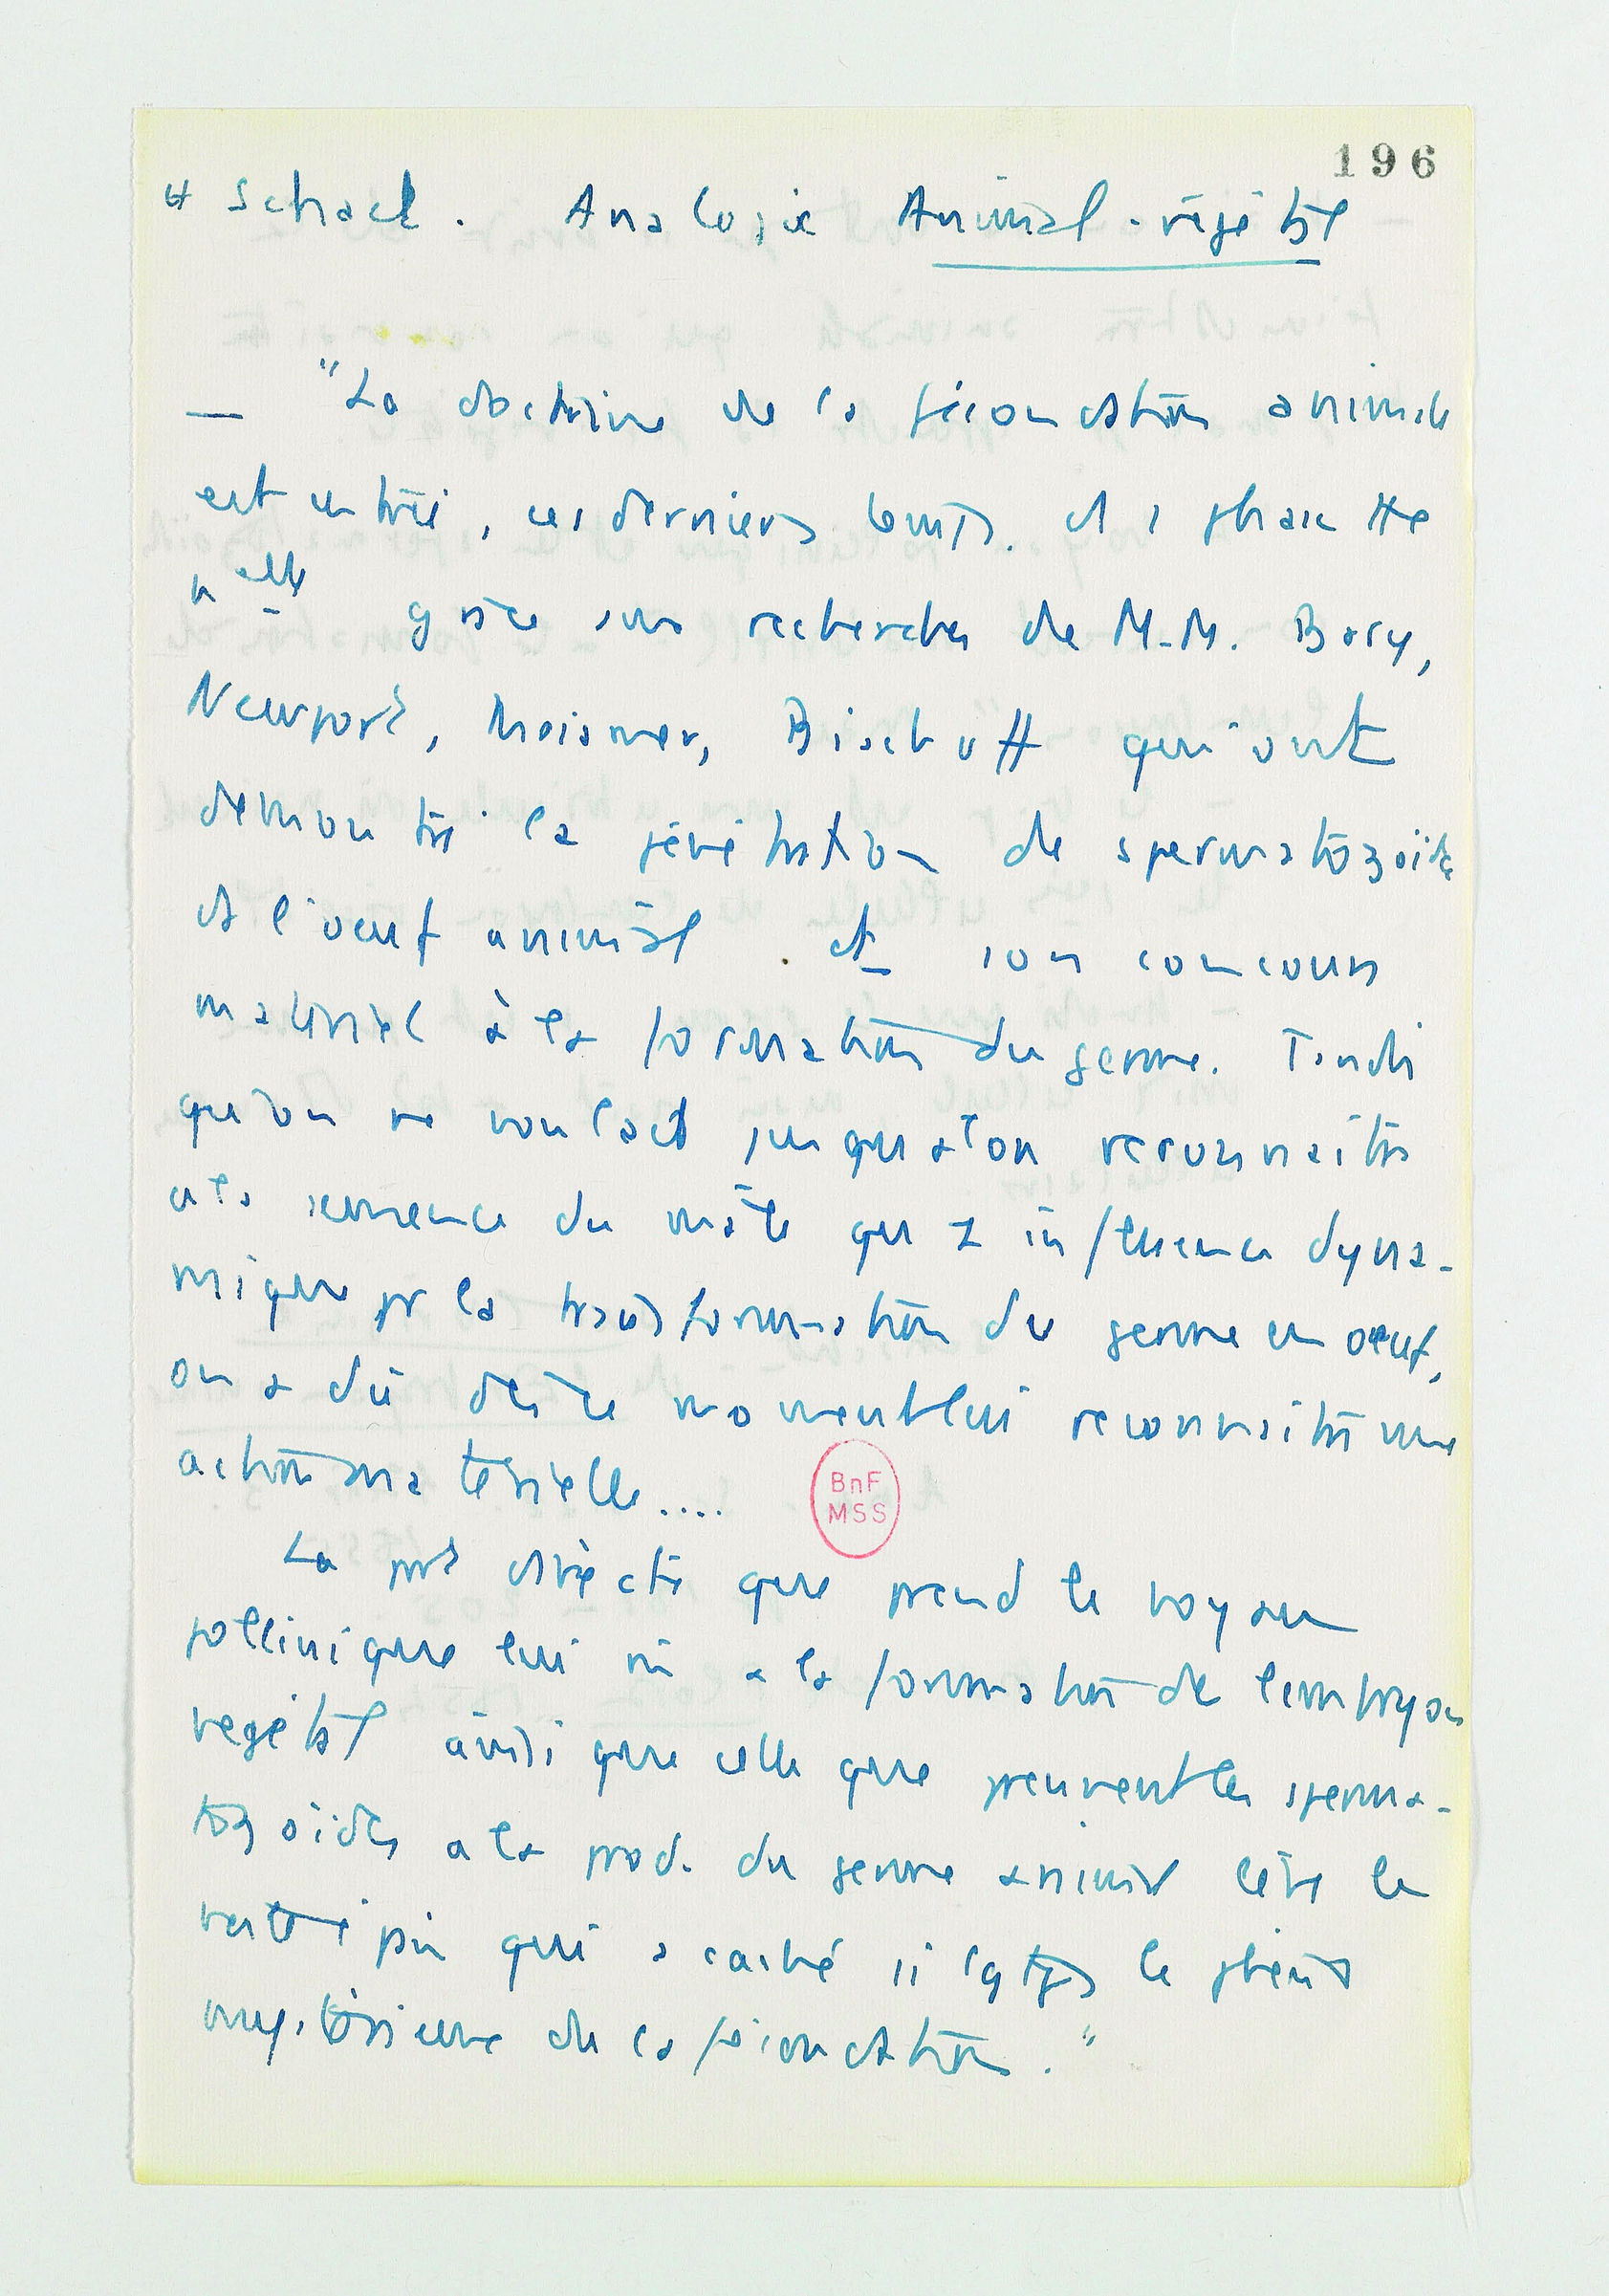 196
H Schacht. Analogie Animal-végétal
— "La doctrine de la fécondation animale
est entrée, ces derniers temps. ds 1 phase tte
nelle grâce aux recherches de M.M. Bary,
Newport, Meissner, Bischoff qui ont
démontré la pénétration de spermatozoïdes
ds l'œuf animal. et son concours
matériel à la formation du germe. Tandis
qu'on ne voulait jusqu'alors reconnaître
à la semence du mâle qu'1 influence dyna-
mique pr la transformation du germe en oeuf,
on a dû dès ce moment lui reconnaître une
action matérielle....
La part directe que prend le noyau
pollinique lui mê à la formation de l'embryon
végétal ainsi que celle que prennent les sperma-
tozoïdes à la prod. du germe animal lève le
qui a caché si lgtps le phén
mystérieux de la fécondation."
BnF
MSS